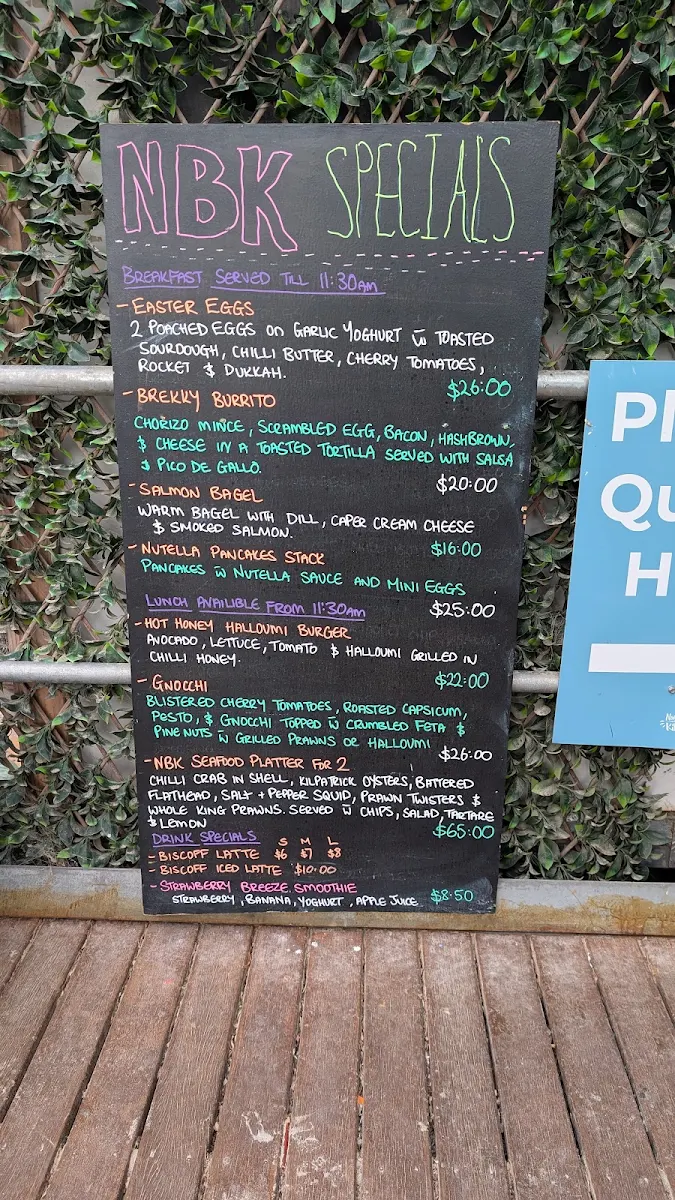 NBK SPECIALS
BREAKFAST SERVED TILL 11:30AM
- EASTER EGGS
2 POACHED EGGS ON GARLIC YOGHURT W TOASTED
SOURDOUGH, CHILLI BUTTER, CHERRY TOMATOES,
ROCKET & DUKKAH.
$26:00
- BREKKY BURRITO
CHORIZO MINCE, SCRAMBLED EGG, BACON, HASHBROWN,
& CHEESE IN A TOASTED TORTILLA SERVED WITH SALSA
& PICO DE GALLO.
$20:00
- SALMON BAGEL
WARM BAGEL WITH DILL, CAPER CREAM CHEESE
& SMOKED SALMON.
$16:00
- NUTELLA PANCAKES STACK
PANCAKES W NUTELLA SAUCE AND MINI EGGS
$25:00
LUNCH AVAILIBLE FROM 11:30AM
- HOT HONEY HALLOUMI BURGER
AVOCADO, LETTUCE, TOMATO & HALLOUMI GRILLED IN
CHILLI HONEY.
$22:00
- GNOCCHI
BLISTERED CHERRY TOMATOES, ROASTED CAPSICUM,
PESTO, & GNOCCHI TOPPED W CRUMBLED FETA &
PINE NUTS W GRILLED PRAWNS OR HALLOUMI
$26:00
- NBK SEAFOOD PLATTER FOR 2
CHILLI CRAB IN SHELL, KILPATRICK OYSTERS, BATTERED
FLATHEAD, SALT + PEPPER SQUID, PRAWN TWISTERS &
WHOLE KING PRAWNS. SERVED W CHIPS, SALAD, TARTARE
& LEMON
$65:00
DRINK SPECIALS S M L
- BISCOFF LATTE $6 $7 $8
- BISCOFF ICED LATTE $10.00
- STRAWBERRY BREEZE SMOOTHIE
STRAWBERRY, BANANA, YOGHURT, APPLE JUICE $8.50
Pl
Qu
H